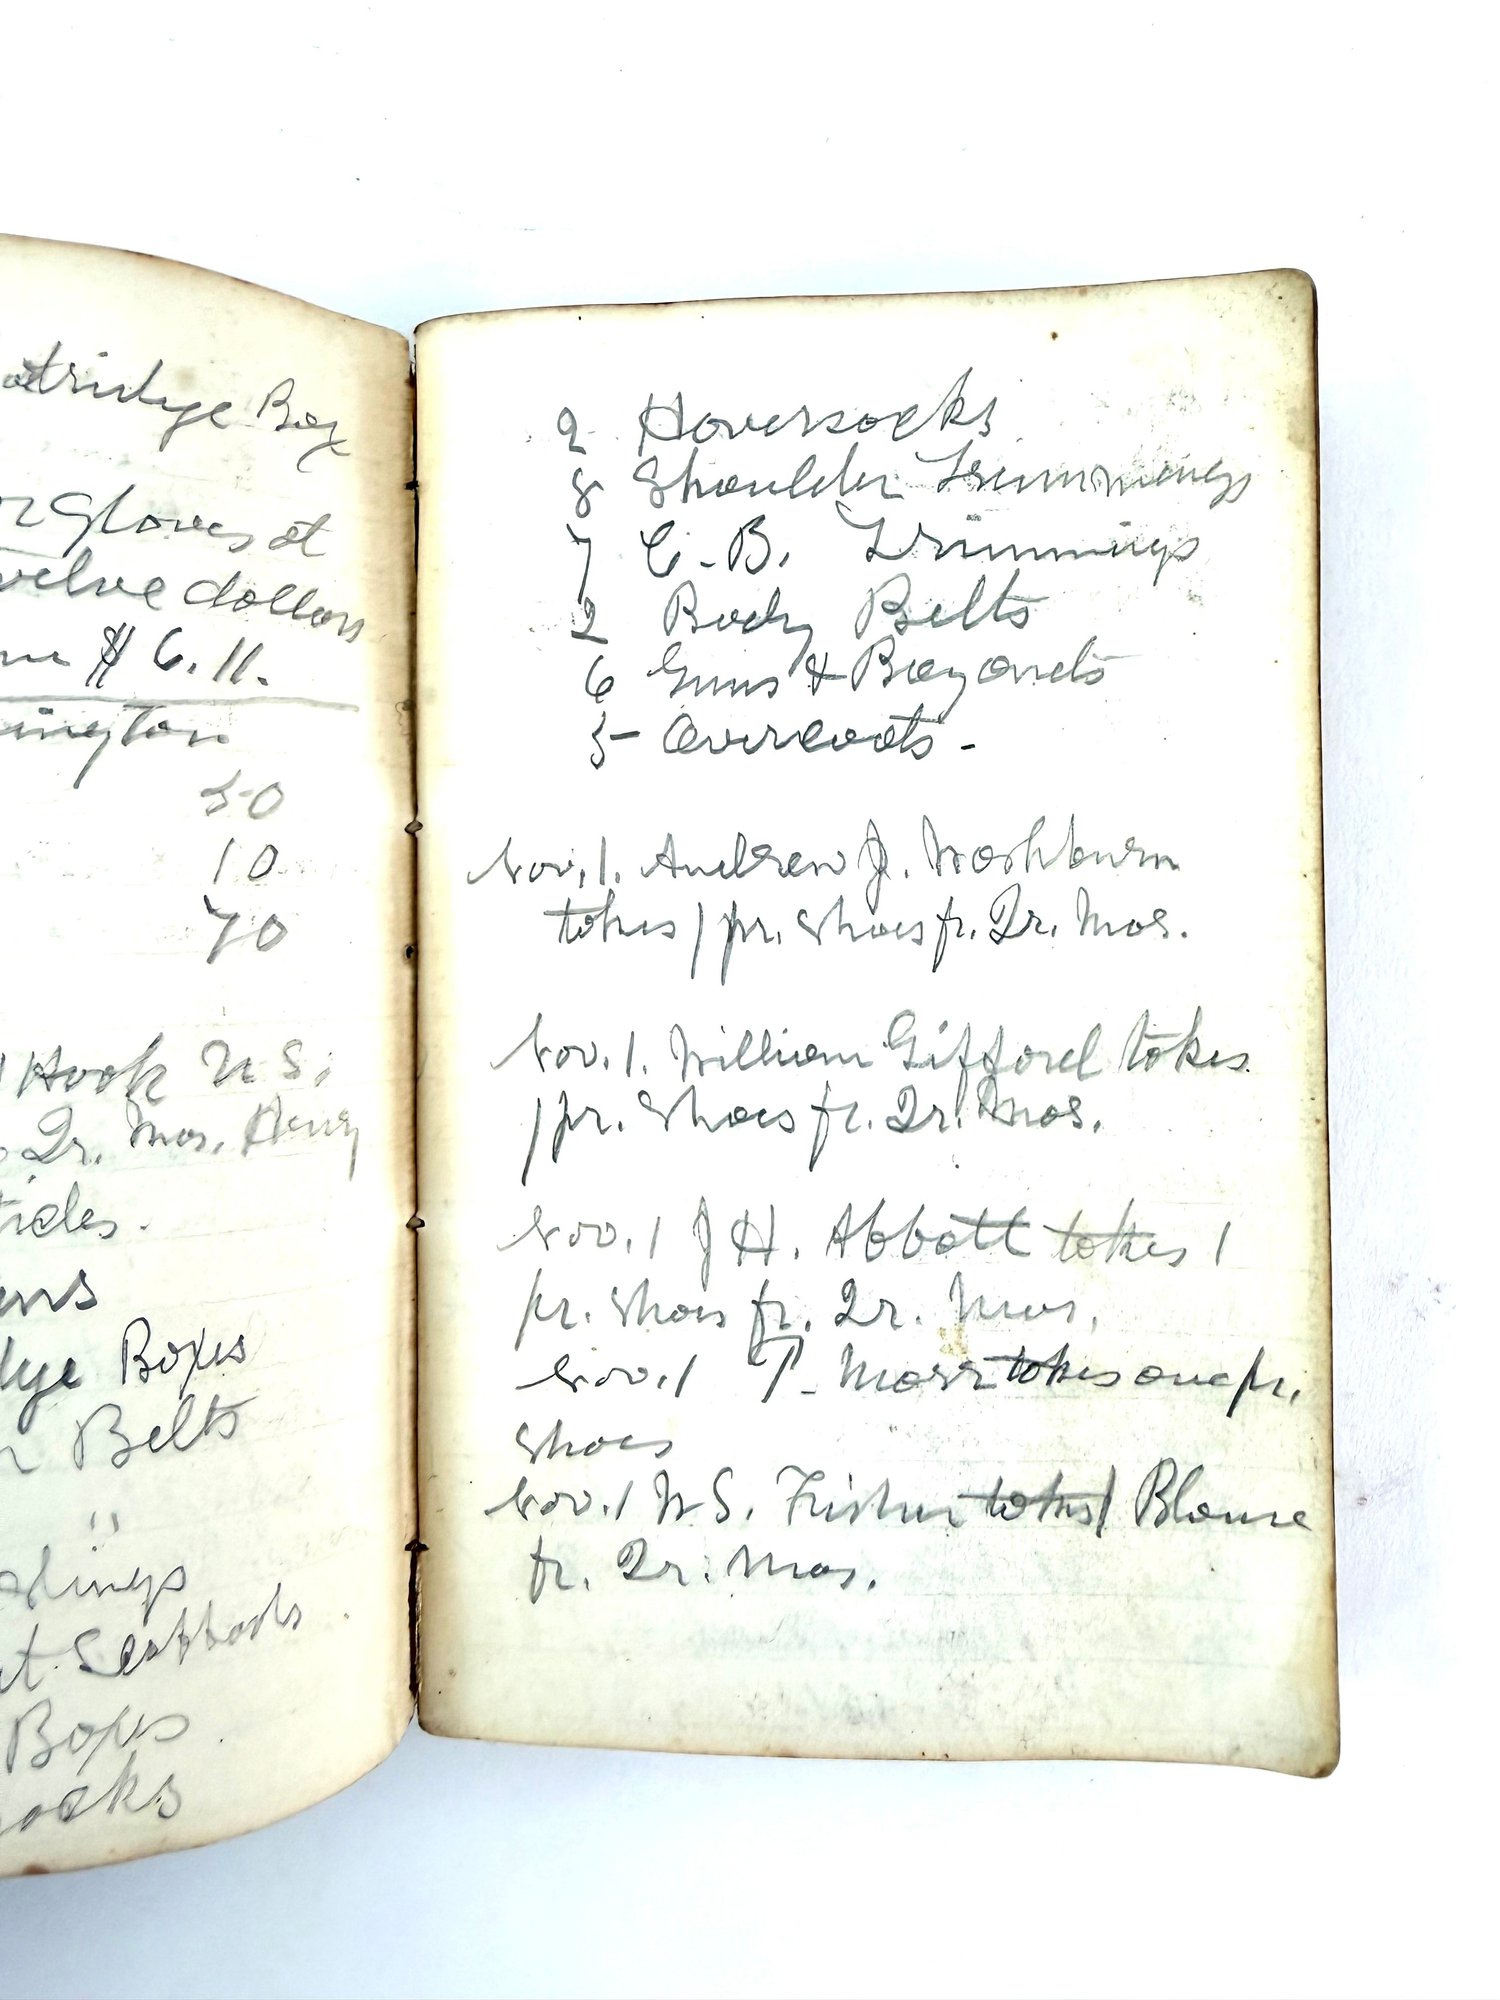 Box
Gloves at
twelve dollars
$ 6.11.
50
10
70
Hook U.S.
Qr. Mas. Henry
Boxes
Belts
"
Boxes
2 Haversacks
8 Shoulder Trimmings
7 C. B. Trimmings
2 Body Belts
6 Guns & Bayonets
5 Overcoats -
Nov. 1. Andrew J. Washburn
takes 1 pr. Shoes fr. Qr. Mas.
Nov. 1. William Gifford takes
1 pr. Shoes fr. Qr. Mas.
Nov. 1 J H. Abbott takes 1
pr. Shoes fr. Qr. Mas.
Nov. 1 T. takes one pr.
Shoes
Nov. 1 W S. Fisher takes 1 Blouse
fr. Qr. Mas.